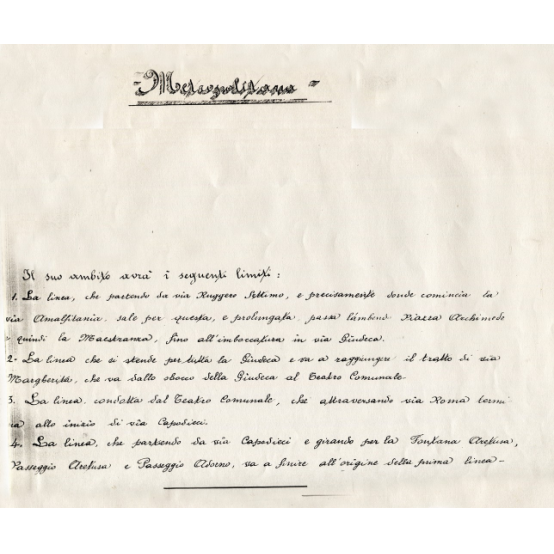 - Metropolitana -
Il suo ambito avrà i seguenti limiti:
1. La linea, che partendo da via Ruggero Settimo, e precisamente donde comincia la
via Amalfitania, sale per questa, e prolungata, passa lambend Piazza Archimede
e quindi la Maestranza, fino all'imboccatura in via Giudeca.
2- La linea che si stende per tutta la Giudeca e va a raggiungere il tratto di via
Margherita, che va dallo sbocco della Giudeca al Teatro Comunale
3. La linea, condotta dal Teatro Comunale, che attraversando via Roma termi
na allo inizio di via Capodieci.
4- La linea, che partendo da via Capodieci e girando per la Fontana Aretusa,
Passeggio Aretusa e Passeggio Adorno, va a finire all'origine della prima linea-